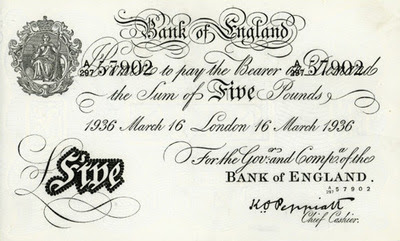 Bank of England
A/297 57902 A/297 57902
to pay the Bearer on Demand
the Sum of Five Pounds
1936 March 16 London 16 March 1936
For the Gov.r and Comp.a of the
BANK OF ENGLAND.
A/297 57902
£Five
K.O. Peppiatt
Chief Cashier.